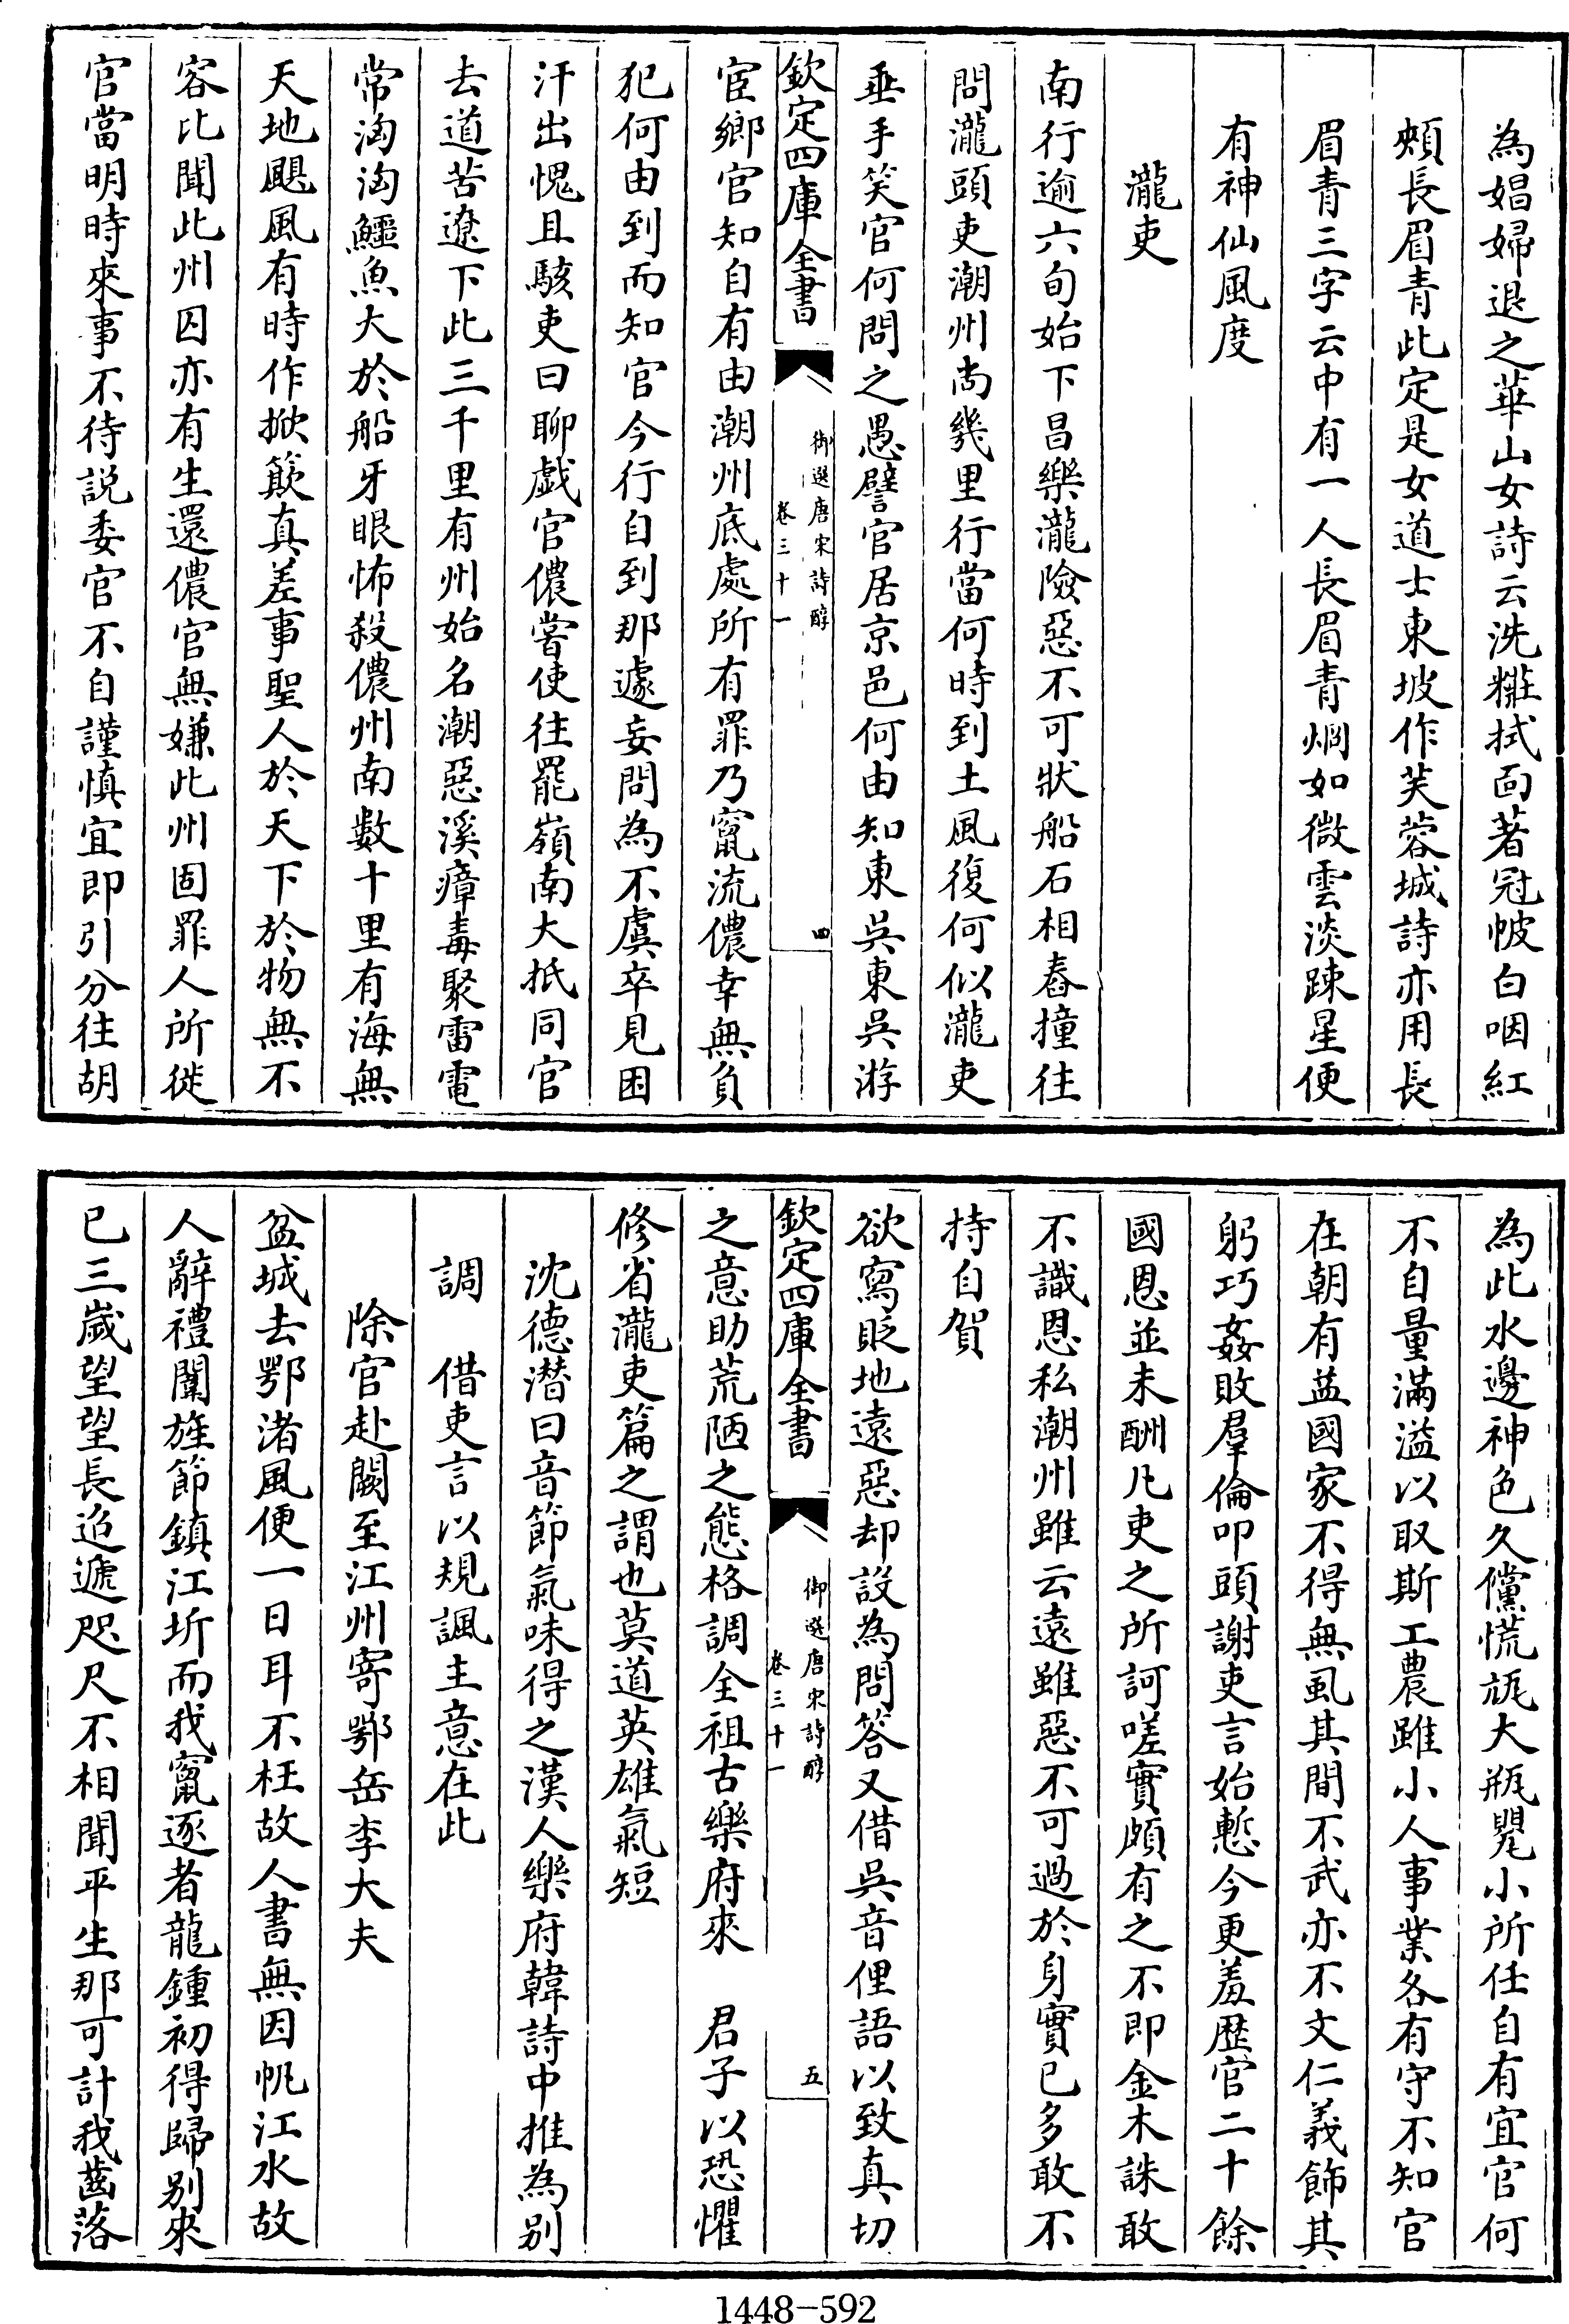 為娼婦退之華山女詩云洗糚拭面著冠帔白咽紅
頰長眉青此定是女道士東坡作芙蓉城詩亦用長
眉青三字云中有一人長眉青炯如微雲淡踈星便
有神仙風度
瀧吏
南行逾六旬始下昌樂瀧險惡不可狀船石相舂撞往
問瀧頭吏潮州尚幾里行當何時到土風復何似瀧吏
垂手笑官何問之愚譬官居京邑何由知東吳東吳游
欽定四庫全書
御選唐宋詩醇
卷三十一
四
宦鄉官知自有由潮州底處所有罪乃竄流儂幸無負
犯何由到而知官今行自到那遽妄問為不虞卒見困
汗出愧且駭吏曰聊戲官儂嘗使往罷嶺南大抵同官
去道苦遼下此三千里有州始名潮惡溪瘴毒聚雷電
常洶洶鱷魚大於船牙眼怖殺儂州南數十里有海無
天地颶風有時作掀簸真差事聖人於天下於物無不
容比聞此州囚亦有生還儂官無嫌此州固罪人所徙
官當明時來事不待説委官不自謹慎宜即引分往胡
為此水邊神色久戃慌瓬大瓶甖小所任自有宜官何
不自量滿溢以取斯工農雖小人事業各有守不知官
在朝有益國家不得無虱其間不武亦不文仁義飾其
躬巧姦敗羣倫叩頭謝吏言始慙今更羞歷官二十餘
國恩並未酬凡吏之所訶嗟實頗有之不即金木誅敢
不識恩私潮州雖云遠雖惡不可過於身實已多敢不
持自賀
欲寫貶地遠惡却設為問答又借吳音俚語以致真切
欽定四庫全書
御選唐宋詩醇
卷三十一
五
之意助荒陋之態格調全祖古樂府來　君子以恐懼
修省瀧吏篇之謂也莫道英雄氣短
沈德潛曰音節氣味得之漢人樂府韓詩中推為別
調　借吏言以規諷主意在此
除官赴闕至江州寄鄂岳李大夫
盆城去鄂渚風便一日耳不枉故人書無因帆江水故
人辭禮闈旌節鎮江圻而我竄逐者龍鍾初得歸別來
已三歲望望長迢遞咫尺不相聞平生那可計我齒落
1448-592